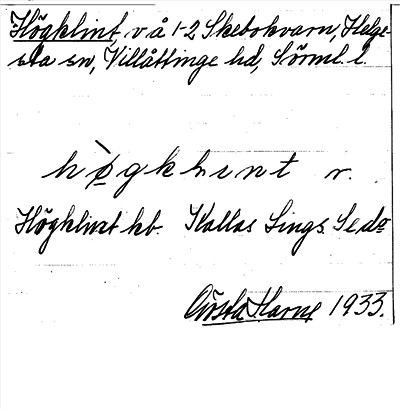 Högklint, v å 1-2 Skebokvarn, Helge-
sta sn, Villåttinge hd, Sörml. l.
högklint r.
Högklint kb. Kallas Lings. Se do
Gösta Harne 1933.